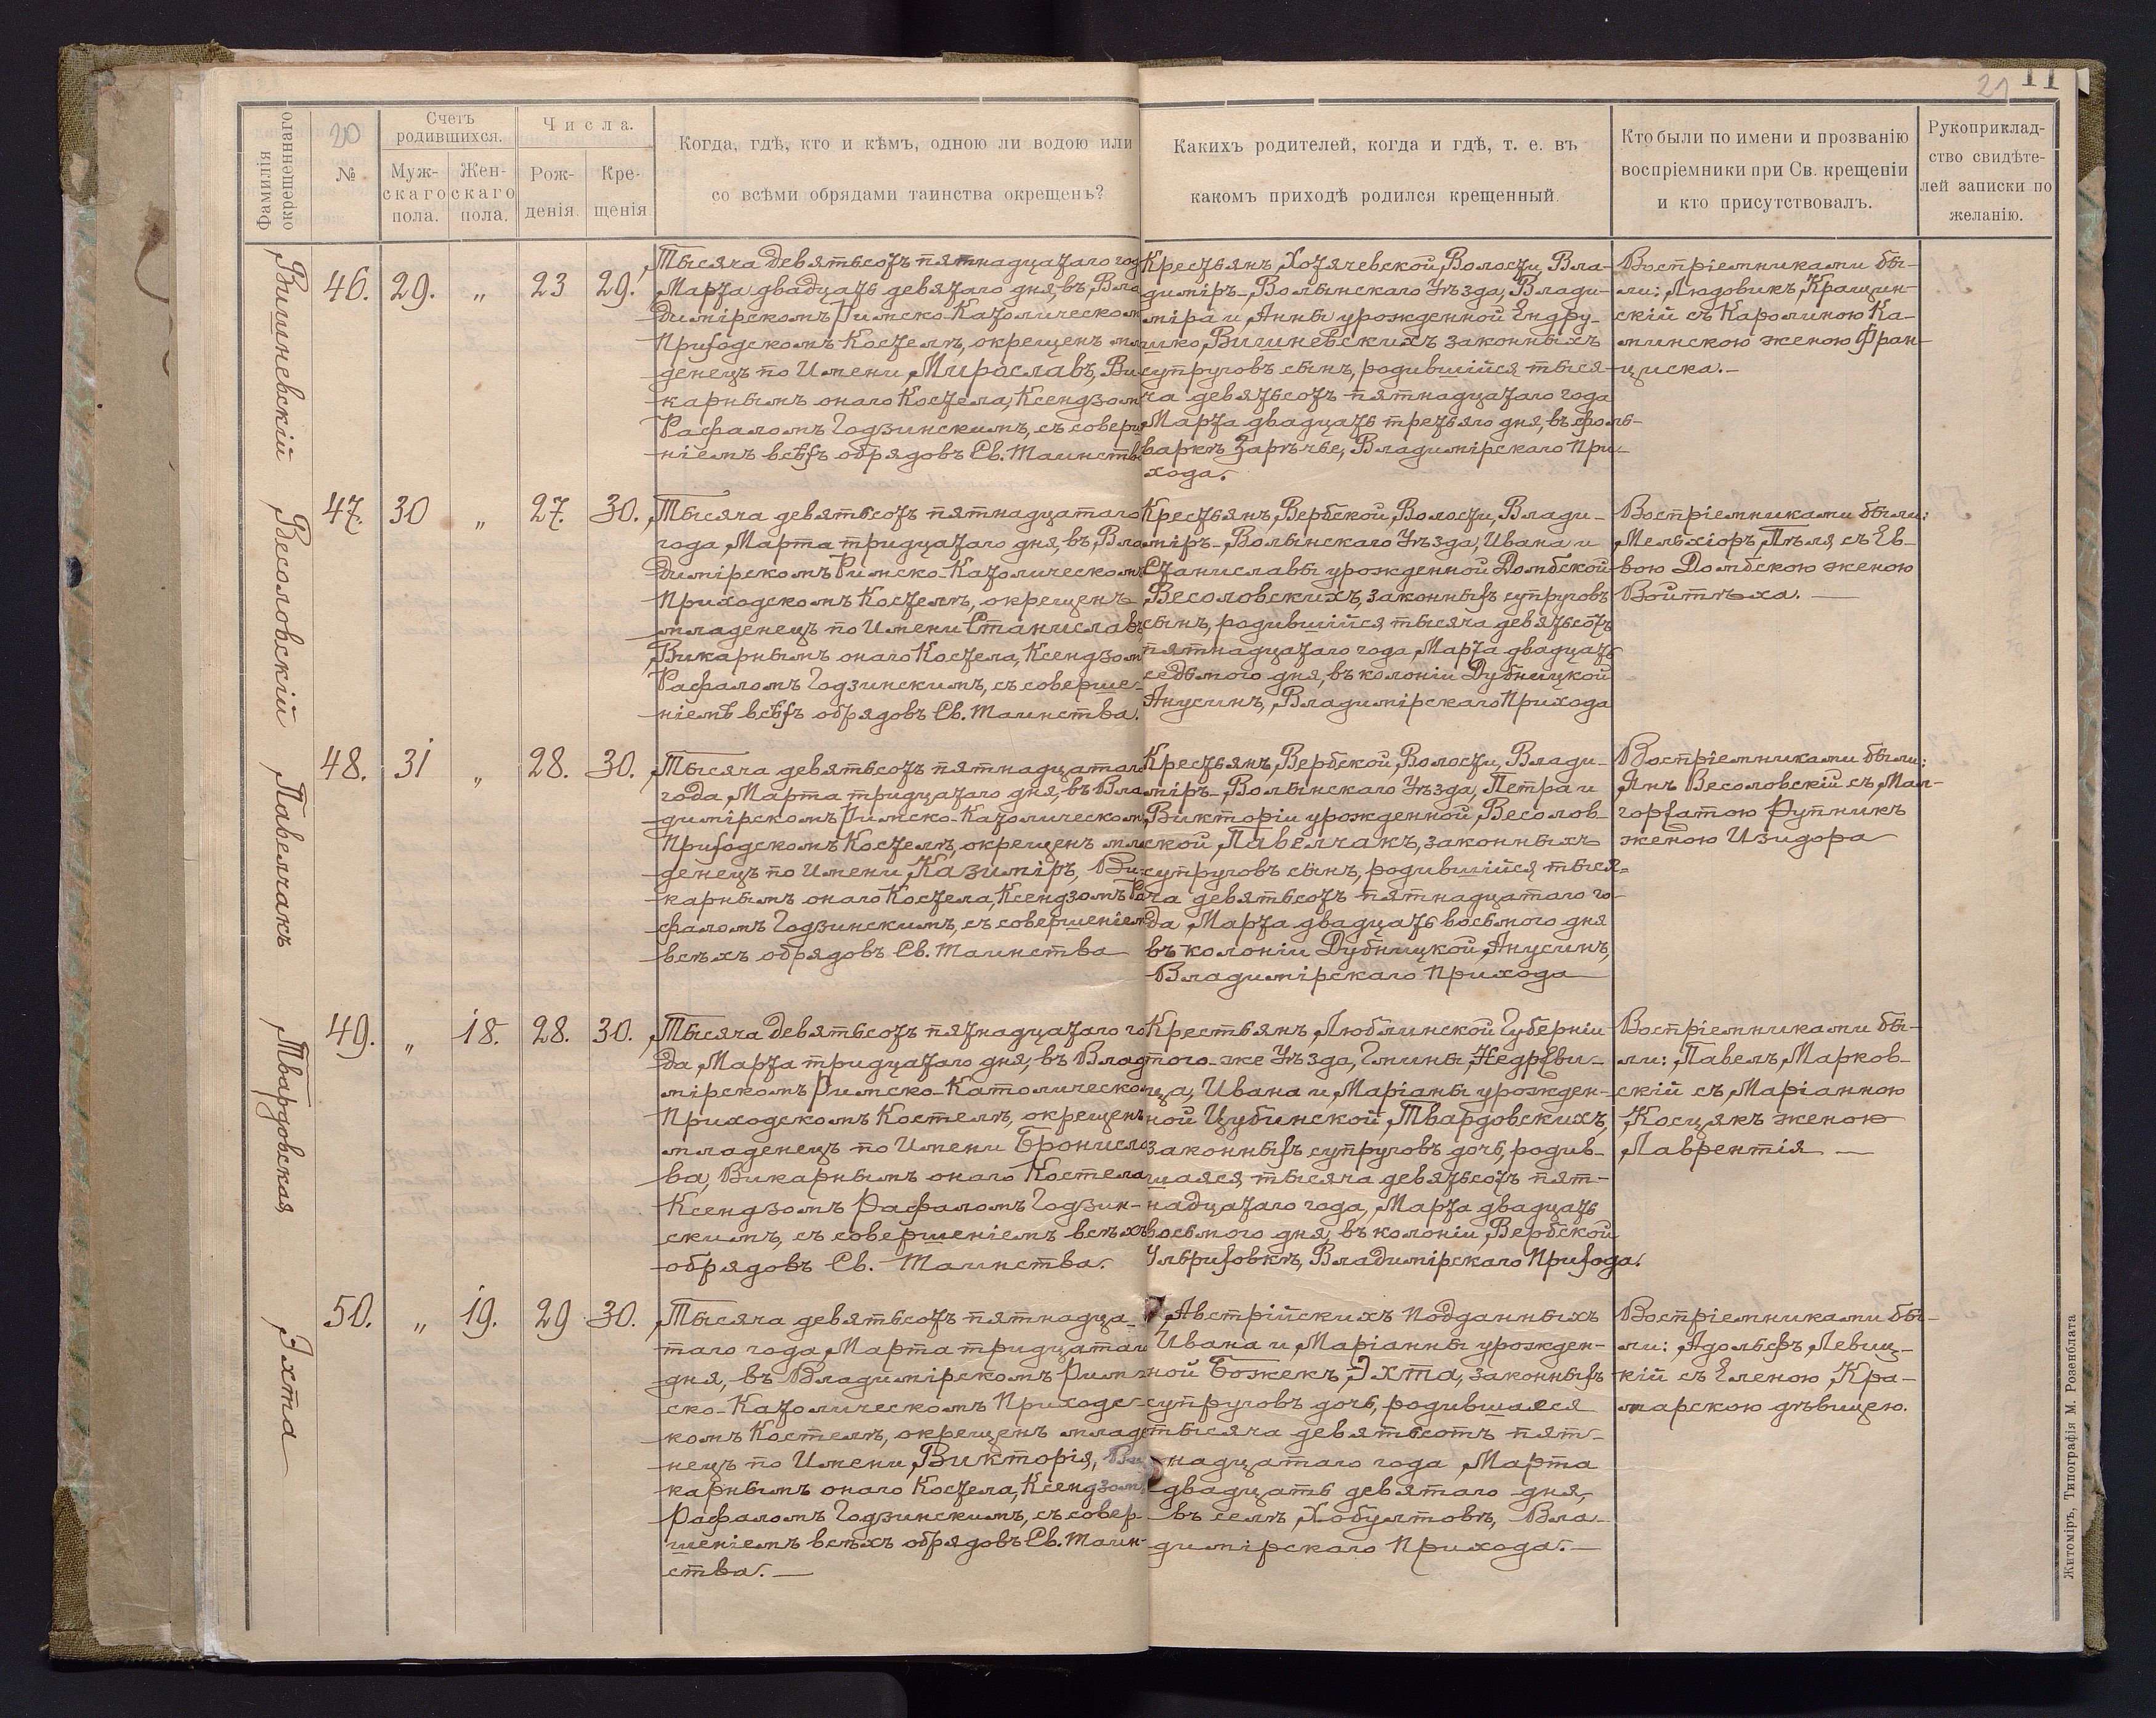 21 11
Фамилія
окрещеннаго
20
№
Счетъ
родившихся.
Муж-
скаго
пола.
Жен-
скаго
пола.
Числа.
Рож-
денія.
Кре-
щенія
Когда, гдѣ, кто и кѣмъ, одною ли водою или
со всѣми обрядами таинства окрещенъ?
Какихъ родителей, когда и гдѣ, т. е. въ
какомъ приходѣ родился крещенный.
Кто были по имени и прозванію
воспріемники при Св. крещеніи
и кто присутствовалъ.
Рукоприклад-
ство свидѣте-
лей записки по
желанію.
Вишневскій
46. 29. „ 23 29.
Тысяча девятьсотъ пятнадцатаго год
Марта двадцать девятаго дня, въ Вла
димірскомъ Римско-Католическом
Приходскомъ Костелѣ, окрещенъ мла
денецъ по Имени Мирославъ, Ви
карнымъ онаго Костела, Ксендзом
Рафаломъ Годзинскимъ, съ соверше
ніемъ всѣхъ обрядовъ Св. Таинства
Крестьянъ, Хотячевской Волости, Вла-
диміръ-Волынскаго Уѣзда, Влади-
міра и Анны урожденной Ендру-
шко, Вишневскихъ законныхъ
супруговъ сынъ, родившійся тыся-
ча девятьсотъ пятнадцатаго года
Марта двадцать третьяго дня, въ фоль-
варкѣ Зарѣчье, Владимірскаго При-
хода.
Воспріемниками бы-
ли: Людовикъ Кращин-
скій съ Каролиною Ка-
минскою женою Фран-
циска.-
Весоловскій
47. 30 „ 27. 30.
Тысяча девятьсотъ пятнадцатаго
года, Марта тридцатаго дня, въ Вла
димірскомъ Римско-Католическомъ
Приходскомъ Костелѣ, окрещенъ
младенецъ по Имени Станиславъ
Викарнымъ онаго Костела, Ксендзом
Рафаломъ Годзинскимъ, съ соверше-
ніемъ всѣхъ обрядовъ Св. Таинства.
Крестьянъ, Вербской, Волости, Влади-
міръ-Волынскаго Уѣзда, Ивана и
Станиславы урожденной Домбской
Весоловскихъ, законныхъ супруговъ
сынъ, родившійся тысяча девятьсотъ
пятнадцатаго года, Марта двадцать
седьмого дня, въ колоніи Дубницкой
Анусинъ, Владимірскаго Прихода
Воспріемниками были:
Мельхіоръ Пѣля съ Ев-
вою Домбскою женою
Войтѣха. —
Павелчакъ
48. 31 „ 28. 30.
Тысяча девятьсотъ пятнадцатаго
года, Марта тридцатаго дня, въ Вла
димірскомъ Римско-Католическом
Приходскомъ Костелѣ, окрещенъ мла
денецъ по Имени Казиміръ, Ви-
карнымъ онаго Костела, Ксендзомъ Ра
фаломъ Годзинскимъ, съ совершеніем
всѣхъ обрядовъ Св. Таинства
Крестьянъ, Вербской, Волости, Влади-
міръ-Волынскаго Уѣзда, Петра и
Викторіи урожденной, Весолов-
ской, Павелчакъ, законныхъ
супруговъ сынъ, родившійся тыся-
ча девятьсотъ пятнадцатаго го-
да Марта двадцать восьмого дня
въ колоніи Дубницкой, Анусинъ,
Владимірскаго Прихода
Воспріемниками были:
Янъ Весоловскій съ Мал-
горжатою Рутникъ
женою Изидора
Твардовская
49. „ 18. 28. 30.
Тысяча девятьсотъ пятнадцатаго го
да, Марта тридцатаго дня, въ Влад
мірскомъ Римско-Католическо
Приходскомъ Костелѣ, окрещенъ
младенецъ по Имени Бронисла
ва, Викарнымъ онаго Костела
Ксендзомъ Рафаломъ Годзин-
скимъ, съ совершеніемъ всѣхъ
обрядовъ Св. Таинства.
Крестьянъ, Люблинской Губерніи
того-же Уѣзда, Гмины Недрвви-
ца, Ивана и Маріаны урожден-
ной Цубинской, Твардовскихъ,
законныхъ супруговъ дочь, родив-
шаяся тысяча девятьсотъ пят-
надцатаго года, Марта двадцать
восьмого дня, въ колоніи, Вербской
Ульриховкѣ, Владимірскаго Прихода.
Воспріемниками бы-
ли: Павелъ Марков-
скій съ Маріанною
Косцякъ женою
Лаврентія —
Эхта
50. „ 19. 29 30.
Тысяча девятьсотъ пятнадца-
таго года Марта тридцатаго
дня, въ Владимірскомъ Рим-
ско-Католическомъ Приходс-
комъ Костелѣ, окрещенъ младе
нецъ по Имени Викторія, Ви
карнымъ онаго Костела, Ксендзом
Рафаломъ Годзинскимъ, съ совер-
шеніемъ всѣхъ обрядовъ Св. Таин-
ства. —
Австрійскихъ Подданныхъ
Ивана и Маріанны урожден-
ной Божекъ, Эхта, законныхъ
супруговъ дочь, родившаяся
тысяча девятьсотъ пят-
надцатаго года Марта
двадцать девятаго дня,
въ селѣ Хобултовѣ, Вла-
димірскаго Прихода. —
Воспріемниками бы-
ли: Адольфъ Левиц-
кій съ Еленою Кра-
марскою дѣвицею.
Житоміръ, Типографія М. Розенблата